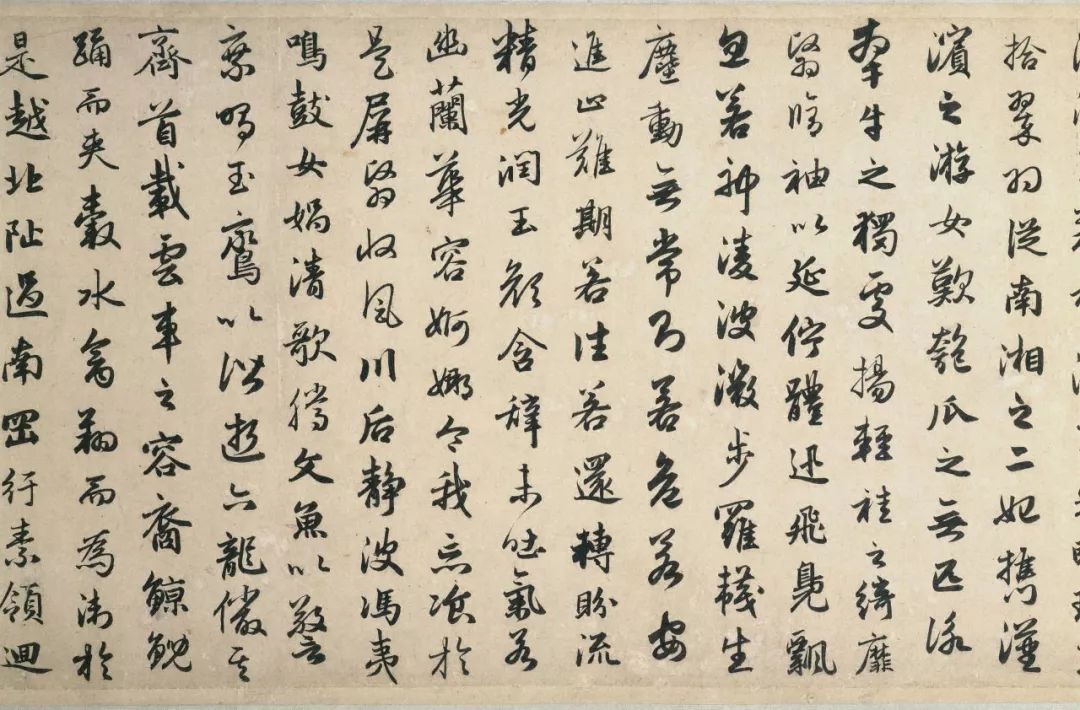 拾翠羽從南湘之二妃攜漢
濱之游女歎匏瓜之無匹詠
牽牛之獨處揚輕袿之綺靡
翳脩袖以延佇體迅飛鳧飄
忽若神淩波微步羅襪生
塵動無常則若危若安
進止難期若往若還轉盼流
精光潤玉顏含辭未吐氣若
幽蘭華容婀娜令我忘飡於
是屏翳收風川后靜波馮夷
鳴鼓女媧清歌騰文魚以警
乘鳴玉鸞以偕逝六龍儼其
齊首載雲車之容裔鯨鯢
踊而夾轂水禽翔而為衛於
是越北阯過南岡紆素領迴